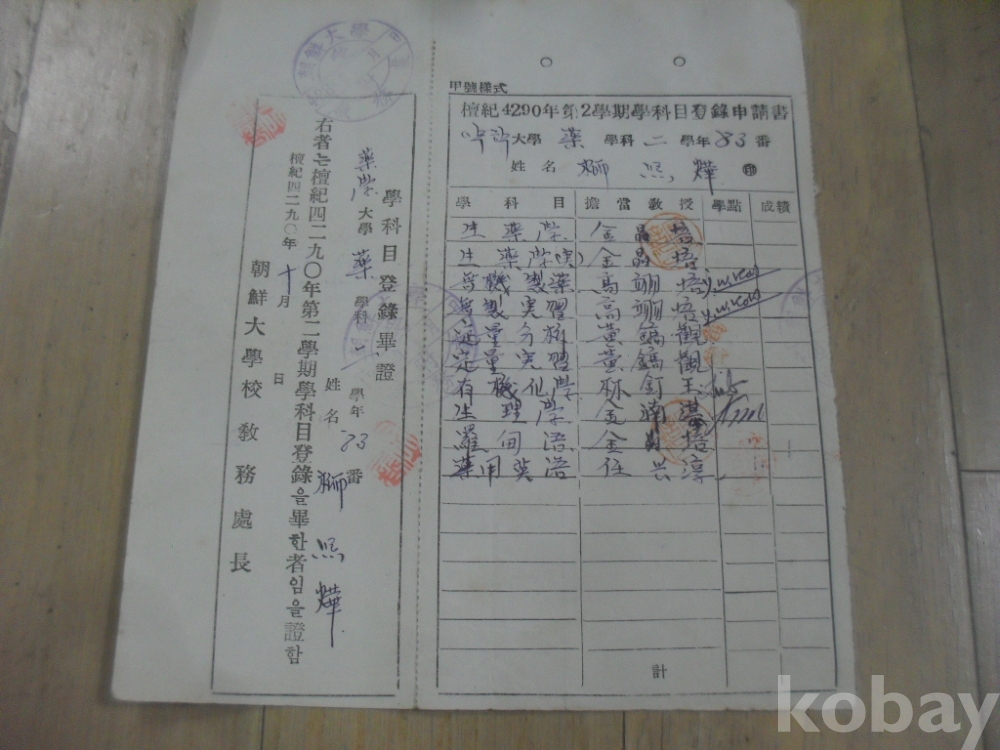 朝鮮大學
甲號樣式
檀紀4290年第2學期學科目登錄申請書
약학大學 藥 學科 二 學年 83 番
姓名 熙燁 印
學科目 擔當敎授 學點 成積
生藥学 金 培
生藥学(実) 金 培
無機製藥 高翊培
製実習 高翊培
定量分析 黃鎬觀
定量実習 黃鎬觀
有機化学 釘玉
生理学 金
羅甸語 金 培
藥用英語 任共淳
計
學科目登錄畢證
藥学大學 藥 學科 二 學年 83番
姓名 熙燁
右者는檀紀四二九〇年第二學期學科目登錄을畢한者임을證함
檀紀四二九〇年 十月 日
朝鮮大學校敎務處長
kobay